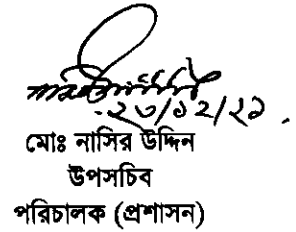 ২৩/১২/২১
মোঃ নাসির উদ্দিন
উপসচিব
পরিচালক (প্রশাসন)